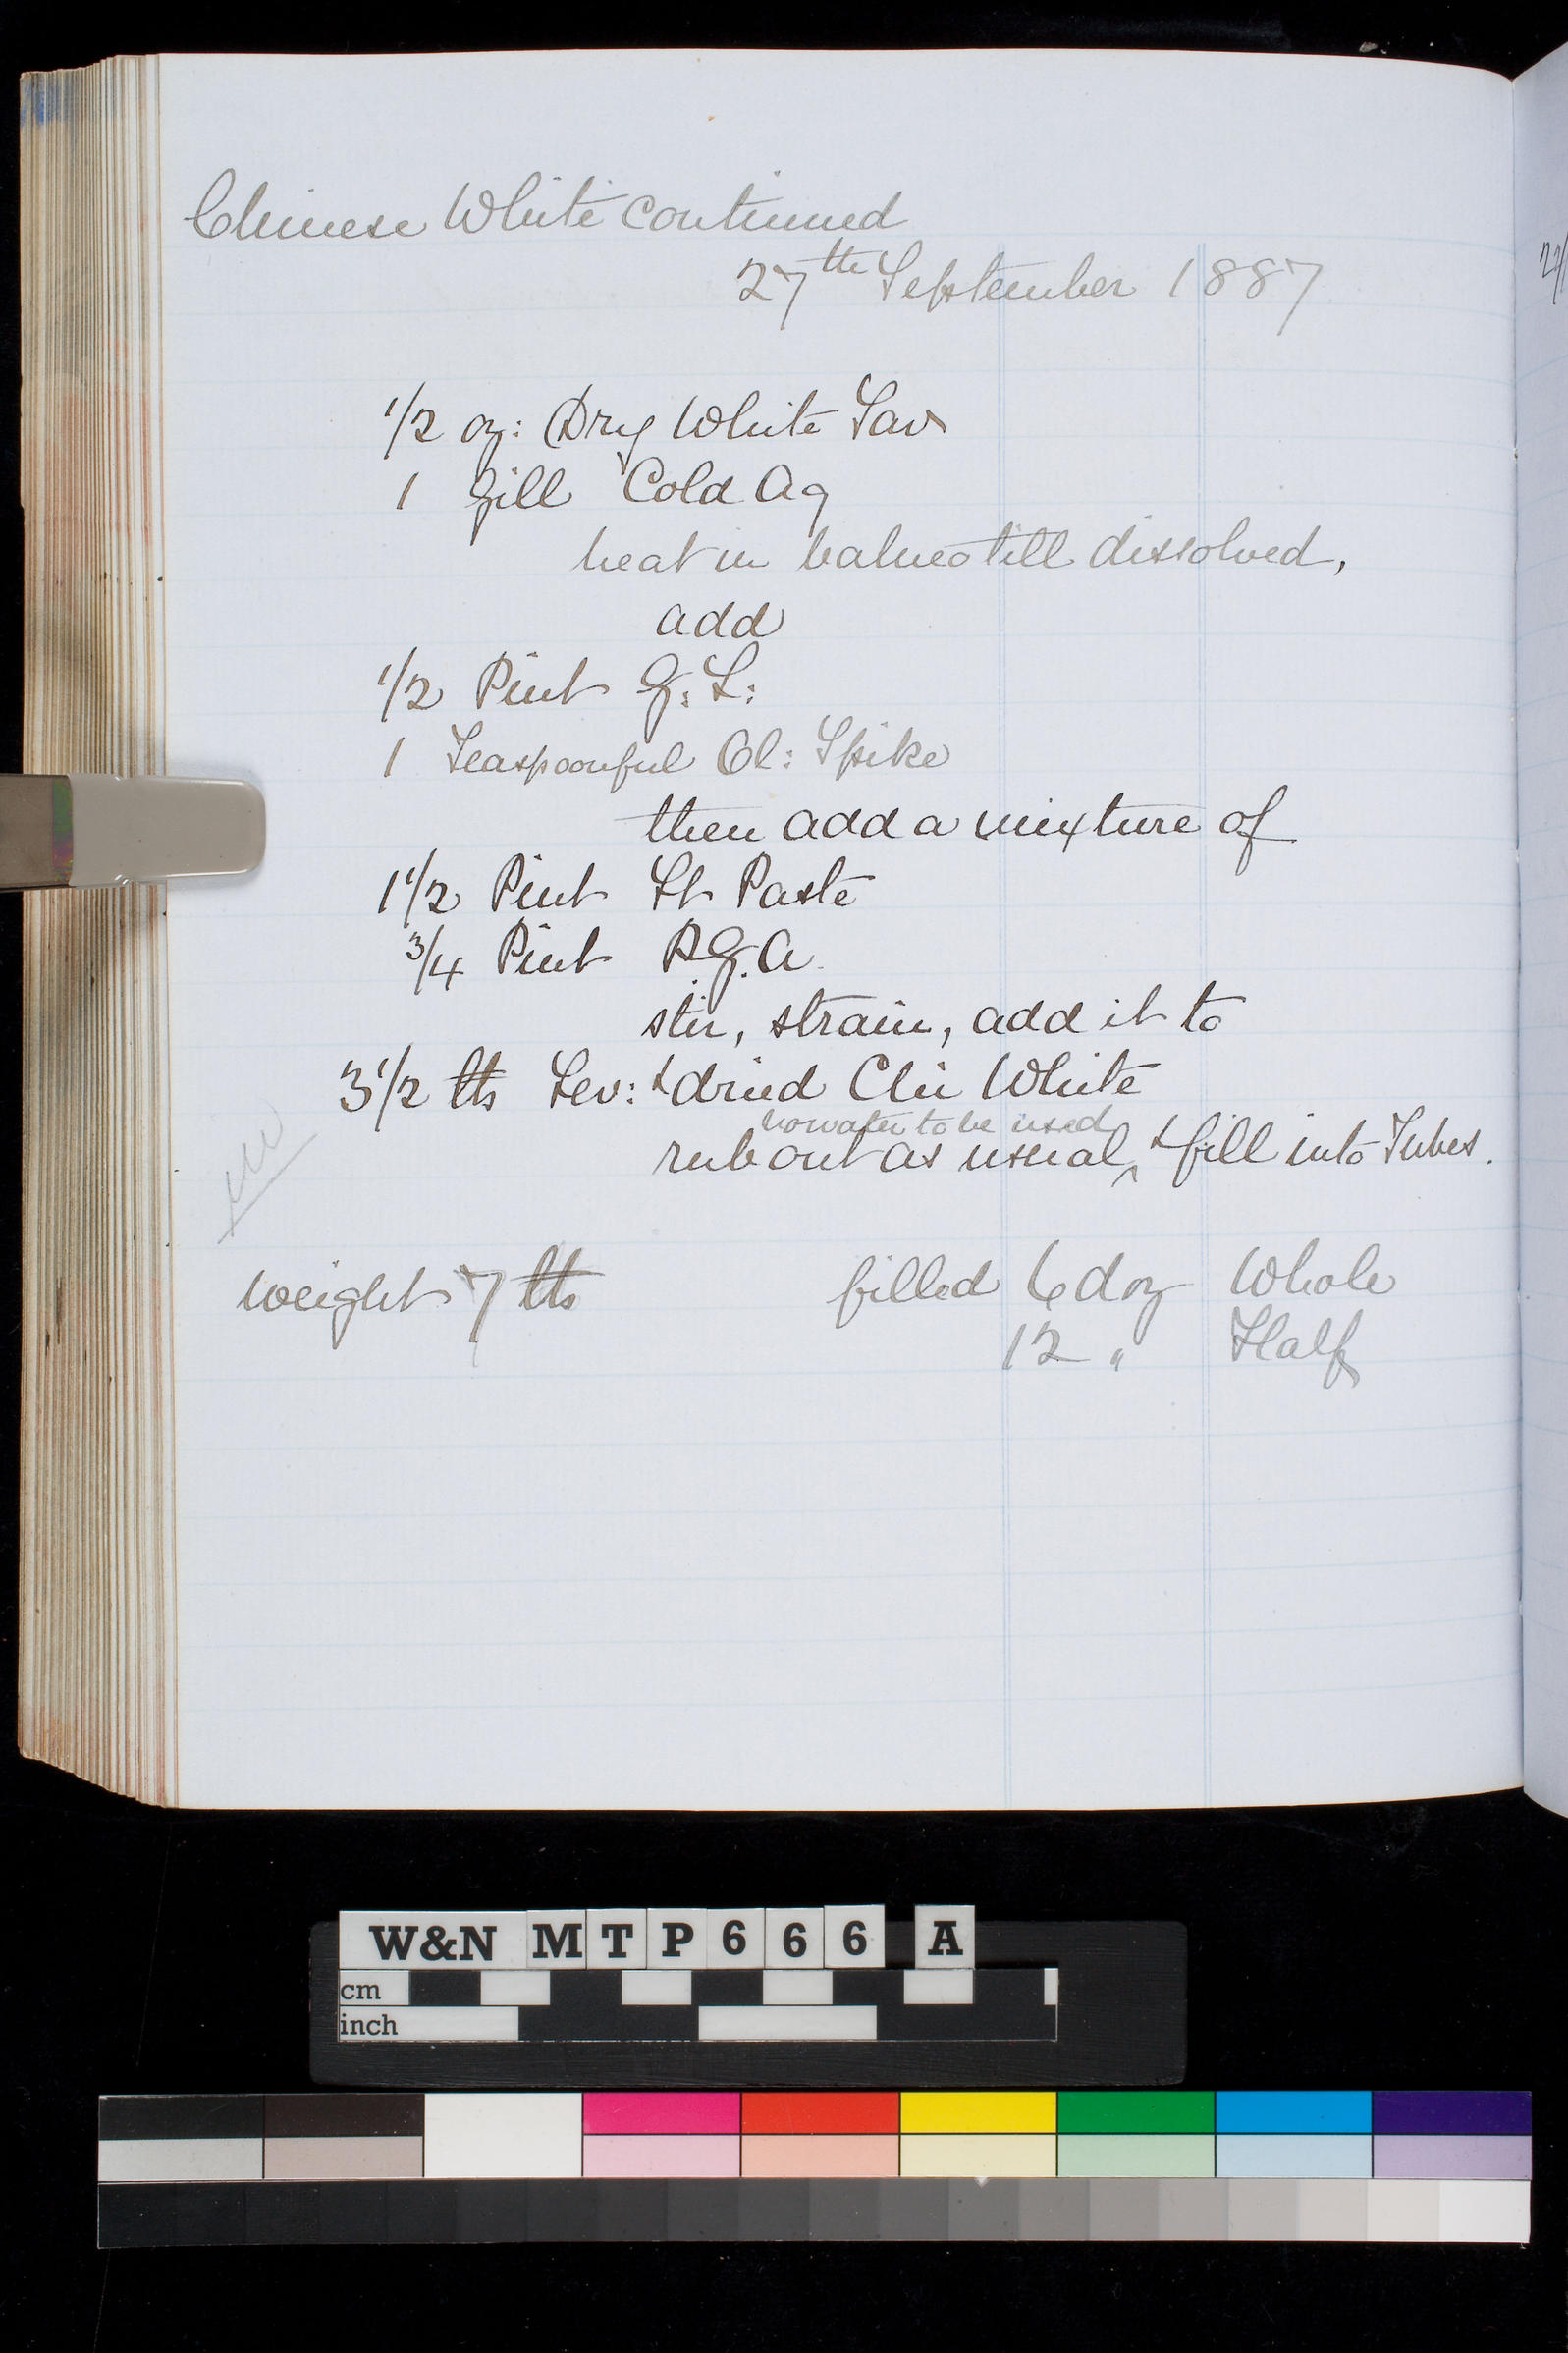 Chinese White continued
27th September 1887
1/2 oz: Dry White Sav
1 Gill Cold Aq
heat in balneo till dissolved,
add
1/2 Pint G: L:
1 Teaspoonful Ol: Spike
then add a mixture of
1 1/2 Pint St Paste
3/4 Pint P.G.A.
stir, strain, add it to
3 1/2 lbs Lev: & dried Chi White
no water to be used
rub out as usual, ^ & fill into Tubes.
weight 7 lbs filled 6 doz Whole
12 " Half
W&N MTP666 A
cm
inch